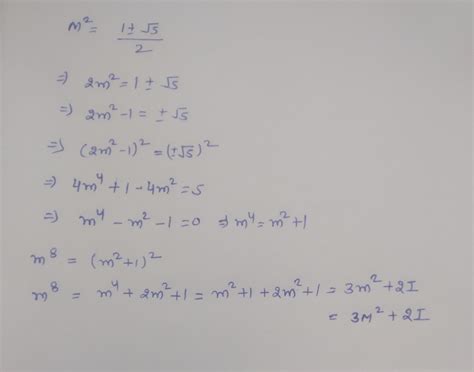 M² = (1 ± √5)/2
⇒ 2m² = 1 ± √5
⇒ 2m² - 1 = ± √5
⇒ (2m² - 1)² = (± √5)²
⇒ 4m⁴ + 1 - 4m² = 5
⇒ m⁴ - m² - 1 = 0 ⇒ m⁴ = m² + 1
m⁸ = (m² + 1)²
m⁸ = m⁴ + 2m² + 1 = m² + 1 + 2m² + 1 = 3m² + 2I
= 3M² + 2I